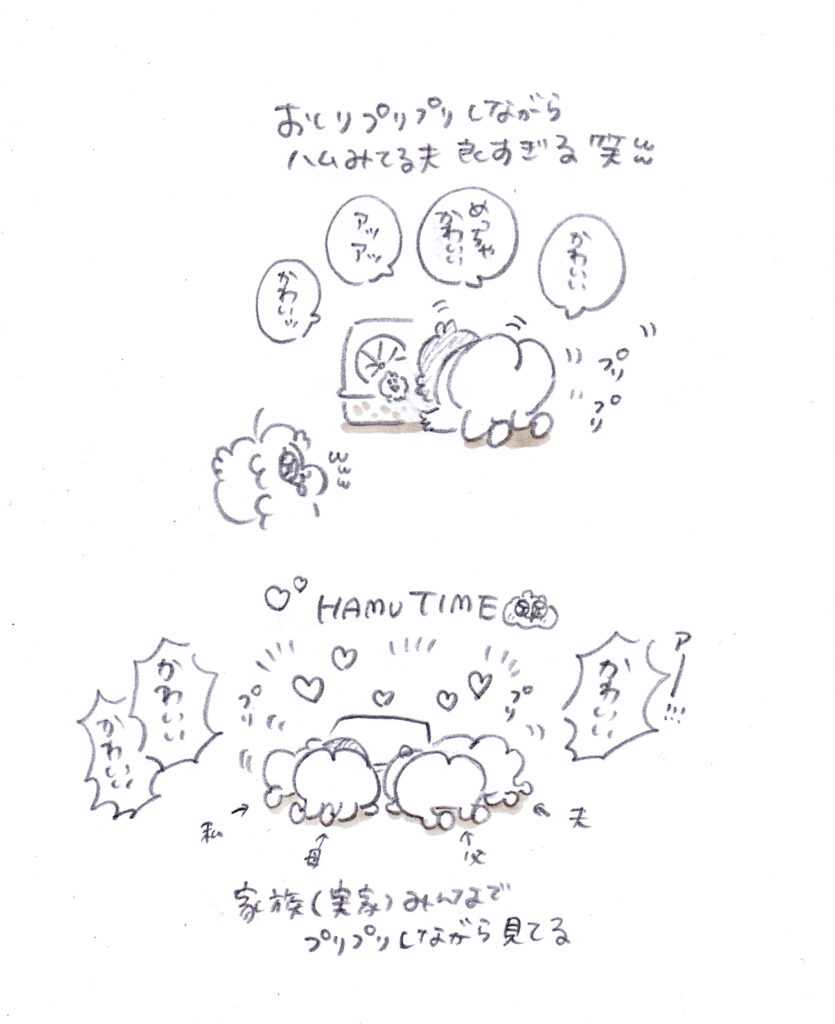 おしりプリプリしながら
ハムみてる夫 良すぎる 笑ww
かわいい
めっちゃ
かわいい
アッ
アッ
かわいッ
プリ
プリ
www
HAMU TIME
アー!!!
かわいい
かわいい
かわいい
プリ
プリ
私
母
父
夫
家族(実家)みんなで
プリプリしながら見てる